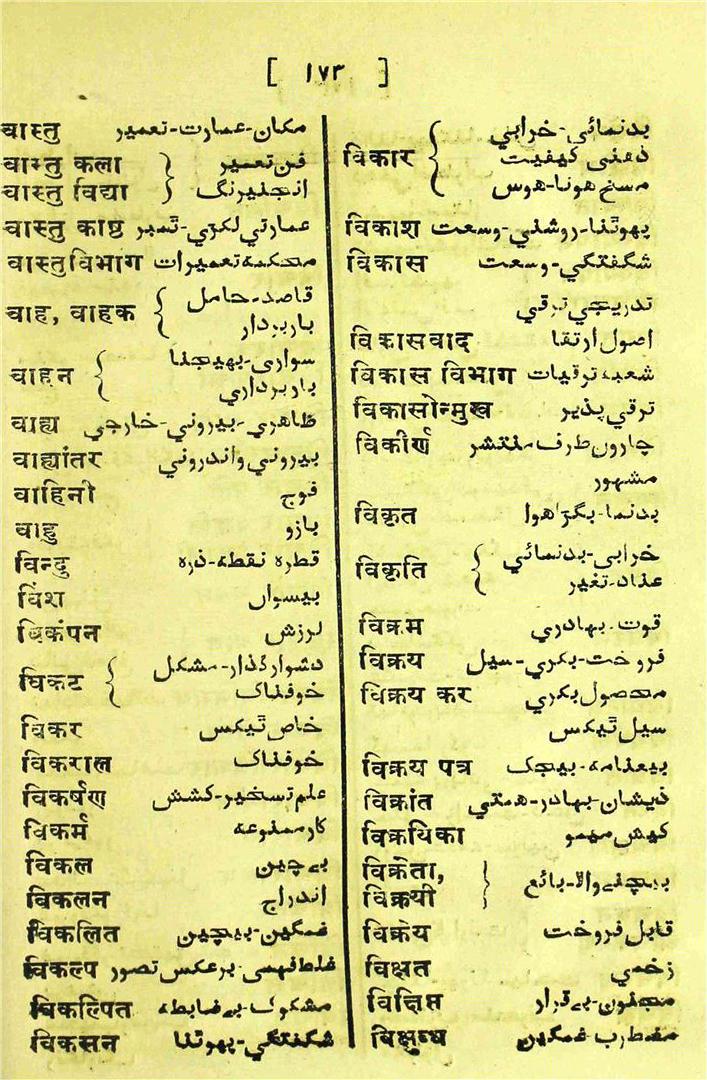 [ ١٧٣ ]
वास्तु مکان-عمارت-تعمیر
वास्तु कला } فن تعمیر
वास्तु विद्या } انجلیرنگ
वास्तु काष्ठ عمارتي لکڑي-ٹمبر
वास्तुविभाग محکمہ تعمیرات
वाह, वाहक { قاصد-حامل
باربردار
वाहन { سواري-بھیجنا
باربرداري
वाह्य ظاهري-بیروني-خارجي
वाह्यांतर بیروني واندروني
वाहिनी فوج
वाहु بازو
विन्दु قطرہ نقطہ-ذرہ
विंश بیسواں
विकंपन لرزش
विकट { دشوارگذار-مشکل
خوفناک
विकर خاص ٹیکس
विकराल خوفناک
विकर्षण علم تسخیر-کشش
विकर्म کار ممنوعہ
विकल بےچین
विकलन اندراج
विकलित غمگین-بیچین
विकल्प غلط فہمي-برعکس تصور
विकल्पित مشکوک-بےضابطہ
विकसन شگفتگي-پھوٹنا
विकार { بدنمائي-خرابي
ذهني کیفیت
مسخ هونا-هوس
विकाश پھوٹنا-روشني-وسعت
विकास شگفتگي-وسعت
تدریجي ترقي
विकासवाद اصول ارتقا
विकास विभाग شعبہ ترقیات
विकासोन्मुख ترقي پذیر
विकीर्ण چارون طرف منتشر
مشہور
विकृत بدنما-بگڑا هوا
विकृति { خرابي-بدنمائي
عناد-تغیر
विक्रम قوت-بہادري
विक्रय فروخت-بکري-سیل
विक्रय कर محصول بکري
سیل ٹیکس
विक्रय पत्र بیعنامہ-بیجک
विक्रांत ذیشان-بہادر-همتي
विक्रयिका کیش میمو
विक्रेता, } بیچنے والا-بائع
विक्रयी
विक्रेय قابل فروخت
विक्षत زخمي
विक्षिप्त مجنون-بے قرار
विक्षुब्ध مضطرب غمگین